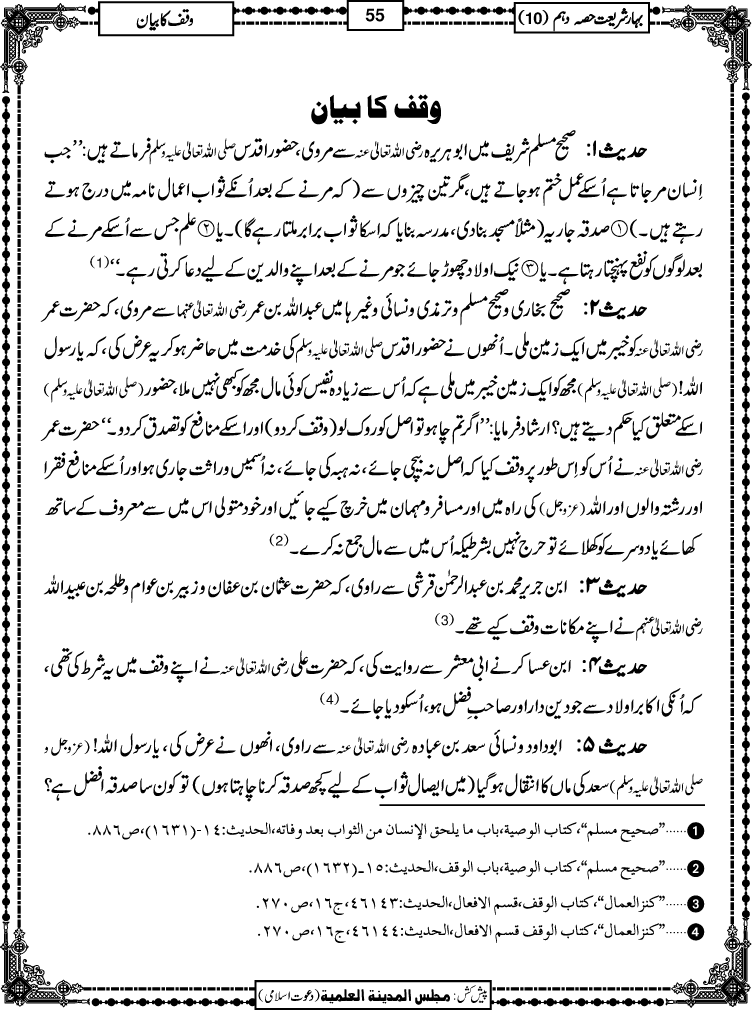 بہارِ شریعت حصہ دہم (10)
55
وقف کا بیان
وقف کا بیان
حدیث ۱: صحیح مسلم شریف میں ابوہریرہ رضی اللہ تعالیٰ عنہ سے مروی، حضور اقدس صلی اللہ تعالیٰ علیہ وسلم فرماتے ہیں: ’’جب
اِنسان مرجاتا ہے اُسکے عمل ختم ہوجاتے ہیں، مگر تین چیزوں سے (کہ مرنے کے بعد اُنکے ثواب اعمال نامہ میں درج ہوتے
رہتے ہیں۔) ① صدقہ جاریہ (مثلاً مسجد بنادی، مدرسہ بنایا کہ اسکا ثواب برابر ملتا رہے گا)۔ یا ② علم جس سے اُسکے مرنے کے
بعد لوگوں کو نفع پہنچتا رہتا ہے۔ یا ③ نیک اولاد چھوڑ جائے جو مرنے کے بعد اپنے والدین کے لیے دعا کرتی رہے۔‘‘ (1)
حدیث ۲: صحیح بخاری و صحیح مسلم و ترمذی و نسائی وغیرہا میں عبداللہ بن عمر رضی اللہ تعالیٰ عنہما سے مروی، کہ حضرت عمر
رضی اللہ تعالیٰ عنہ کو خیبر میں ایک زمین ملی۔ اُنھوں نے حضور اقدس صلی اللہ تعالیٰ علیہ وسلم کی خدمت میں حاضر ہوکر یہ عرض کی، کہ یارسول
اللہ! (صلی اللہ تعالیٰ علیہ وسلم) مجھ کو ایک زمین خیبر میں ملی ہے کہ اُس سے زیادہ نفیس کوئی مال مجھ کو کبھی نہیں ملا، حضور (صلی اللہ تعالیٰ علیہ وسلم)
اسکے متعلق کیا حکم دیتے ہیں؟ ارشاد فرمایا: ’’اگر تم چاہو تو اصل کو روک لو (وقف کردو) اور اسکے منافع کو تصدق کردو۔‘‘ حضرت عمر
رضی اللہ تعالیٰ عنہ نے اُس کو اِس طور پر وقف کیا کہ اصل نہ بیچی جائے، نہ ہبہ کی جائے، نہ اُسمیں وراثت جاری ہو اور اُسکے منافع فقرا
اور رشتہ والوں اور اللہ (عزوجل) کی راہ میں اور مسافر و مہمان میں خرچ کیے جائیں اور خود متولی اس میں سے معروف کے ساتھ
کھائے یا دوسرے کو کھلائے تو حرج نہیں بشرطیکہ اُس میں سے مال جمع نہ کرے۔ (2)
حدیث ۳: ابن جریر محمد بن عبدالرحمٰن قرشی سے راوی، کہ حضرت عثمان بن عفان و زبیر بن عوام و طلحہ بن عبیداللہ
رضی اللہ تعالیٰ عنہم نے اپنے مکانات وقف کیے تھے۔ (3)
حدیث ۴: ابن عساکر نے ابی معشر سے روایت کی، کہ حضرت علی رضی اللہ تعالیٰ عنہ نے اپنے وقف میں یہ شرط کی تھی،
کہ اُنکی اکابر اولاد سے جو دین دار اور صاحبِ فضل ہو، اُسکو دیا جائے۔ (4)
حدیث ۵: ابوداود و نسائی سعد بن عبادہ رضی اللہ تعالیٰ عنہ سے راوی، انھوں نے عرض کی، یارسول اللہ! (عزوجل و
صلی اللہ تعالیٰ علیہ وسلم) سعد کی ماں کا انتقال ہوگیا (میں ایصال ثواب کے لیے کچھ صدقہ کرنا چاہتا ہوں) تو کون سا صدقہ افضل ہے؟
❶......”صحیح مسلم“،کتاب الوصیۃ،باب ما یلحق الإنسان من الثواب بعد وفاتہ،الحدیث:١٤-(١٦٣١)،ص٨٨٦.
❷......”صحیح مسلم“،کتاب الوصیۃ،باب الوقف،الحدیث:١٥ـ(١٦٣٢)،ص٨٨٦.
❸......”کنزالعمال“،کتاب الوقف،قسم الافعال،الحدیث:٤٦١٤٣،ج١٦،ص٢٧٠.
❹......”کنزالعمال“،کتاب الوقف قسم الافعال،الحدیث:٤٦١٤٤،ج١٦،ص٢٧٠.
پیش کش: مجلس المدینۃ العلمیۃ (دعوت اسلامی)